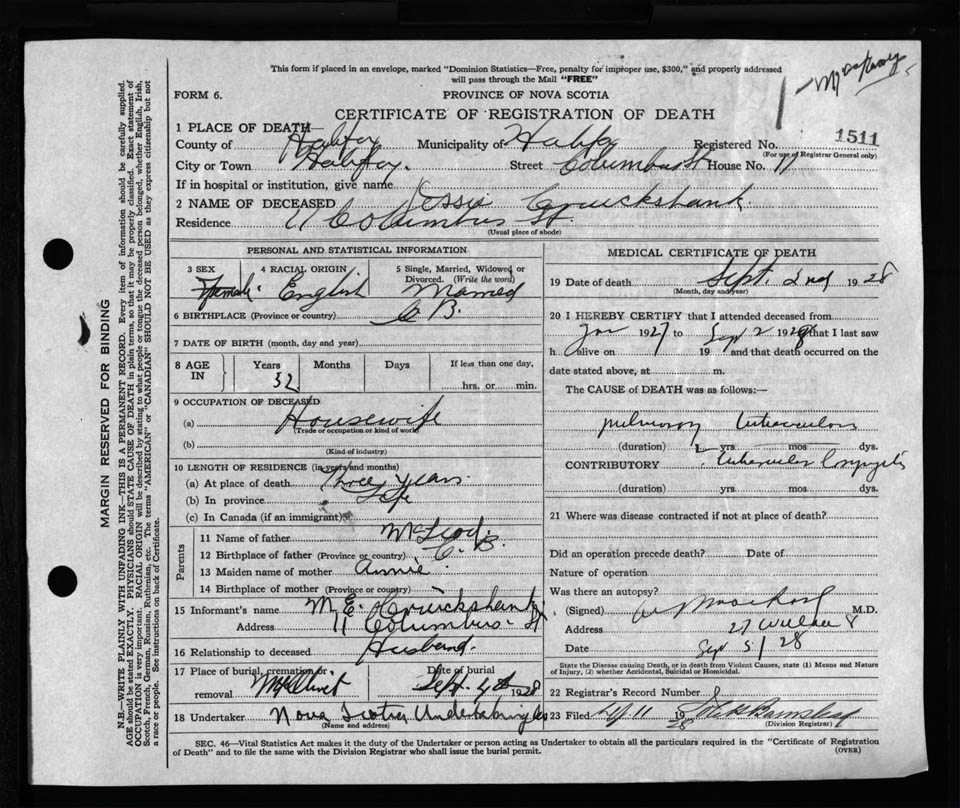 This form if placed in an envelope, marked "Dominion Statistics—Free, penalty for improper use, $300," and properly addressed
will pass through the Mail "FREE"
FORM 6.
PROVINCE OF NOVA SCOTIA
CERTIFICATE OF REGISTRATION OF DEATH
1511
1 PLACE OF DEATH—
County of Halifax Municipality of Halifax Registered No.
(For use of Registrar General only)
City or Town Halifax. Street Columbus St House No. 11
If in hospital or institution, give name
2 NAME OF DECEASED Jessie Cruickshank.
Residence 11 Columbus St.
(Usual place of abode)
PERSONAL AND STATISTICAL INFORMATION
3 SEX 4 RACIAL ORIGIN 5 Single, Married, Widowed or Divorced. (Write the word)
Female English Married
6 BIRTHPLACE (Province or country) C B.
7 DATE OF BIRTH (month, day and year)
8 AGE IN Years Months Days If less than one day,
32 hrs. or min.
9 OCCUPATION OF DECEASED
(a) Housewife
(Trade or occupation or kind of work)
(b)
(Kind of industry)
10 LENGTH OF RESIDENCE (in years and months)
(a) At place of death Three years
(b) In province Life
(c) In Canada (if an immigrant)
Parents
11 Name of father McLeod.
12 Birthplace of father (Province or country) C. B.
13 Maiden name of mother Annie
14 Birthplace of mother (Province or country)
15 Informant's name M. E. Cruickshank
Address 11 Columbus St
16 Relationship to deceased Husband.
17 Place of burial, cremation or removal Date of burial
Mt Olivet Sept. 4th 1928
18 Undertaker Nova Scotia Undertaking Co
(Name and address)
MEDICAL CERTIFICATE OF DEATH
19 Date of death Sept. 2nd 1928
(Month, day and year)
20 I HEREBY CERTIFY that I attended deceased from
Jan 1927 to Sep 2 1928 that I last saw
h alive on 19 and that death occurred on the
date stated above, at m.
The CAUSE of DEATH was as follows:—
pulmonary tuberculosis
(duration) yrs. mos. dys.
CONTRIBUTORY tubercular
(duration) yrs. mos. dys.
21 Where was disease contracted if not at place of death?
Did an operation precede death? Date of
Nature of operation
Was there an autopsy?
(Signed) M.D.
Address 27
Date Sep 5/28
State the Disease causing Death, or in death from Violent Causes, state (1) Means and Nature
of Injury, (2) whether Accidental, Suicidal or Homicidal.
22 Registrar's Record Number
23 Filed 11 1928
(Division Registrar)
SEC. 46—Vital Statistics Act makes it the duty of the Undertaker or person acting as Undertaker to obtain all the particulars required in the "Certificate of Registration
of Death" and to file the same with the Division Registrar who shall issue the burial permit.
(OVER)
MARGIN RESERVED FOR BINDING
N.B.—WRITE PLAINLY WITH UNFADING INK—THIS IS A PERMANENT RECORD. Every item of information should be carefully supplied.
AGE should be stated EXACTLY. PHYSICIANS should STATE CAUSE OF DEATH in plain terms, so that it may be properly classified. Exact statement of
OCCUPATION is very important. RACIAL ORIGIN will be described by stating to what people or tongue the deceased person belonged, whether English, Irish,
Scotch, French, German, Russian, Ruthenian, etc. The terms "AMERICAN" or "CANADIAN" SHOULD NOT BE USED as they express citizenship but not
a race or people. See instructions on back of Certificate.